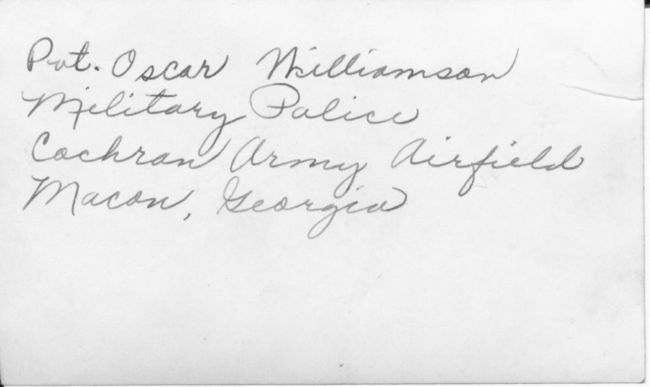 Pvt. Oscar Williamson
Military Police
Cochran Army Airfield
Macon, Georgia